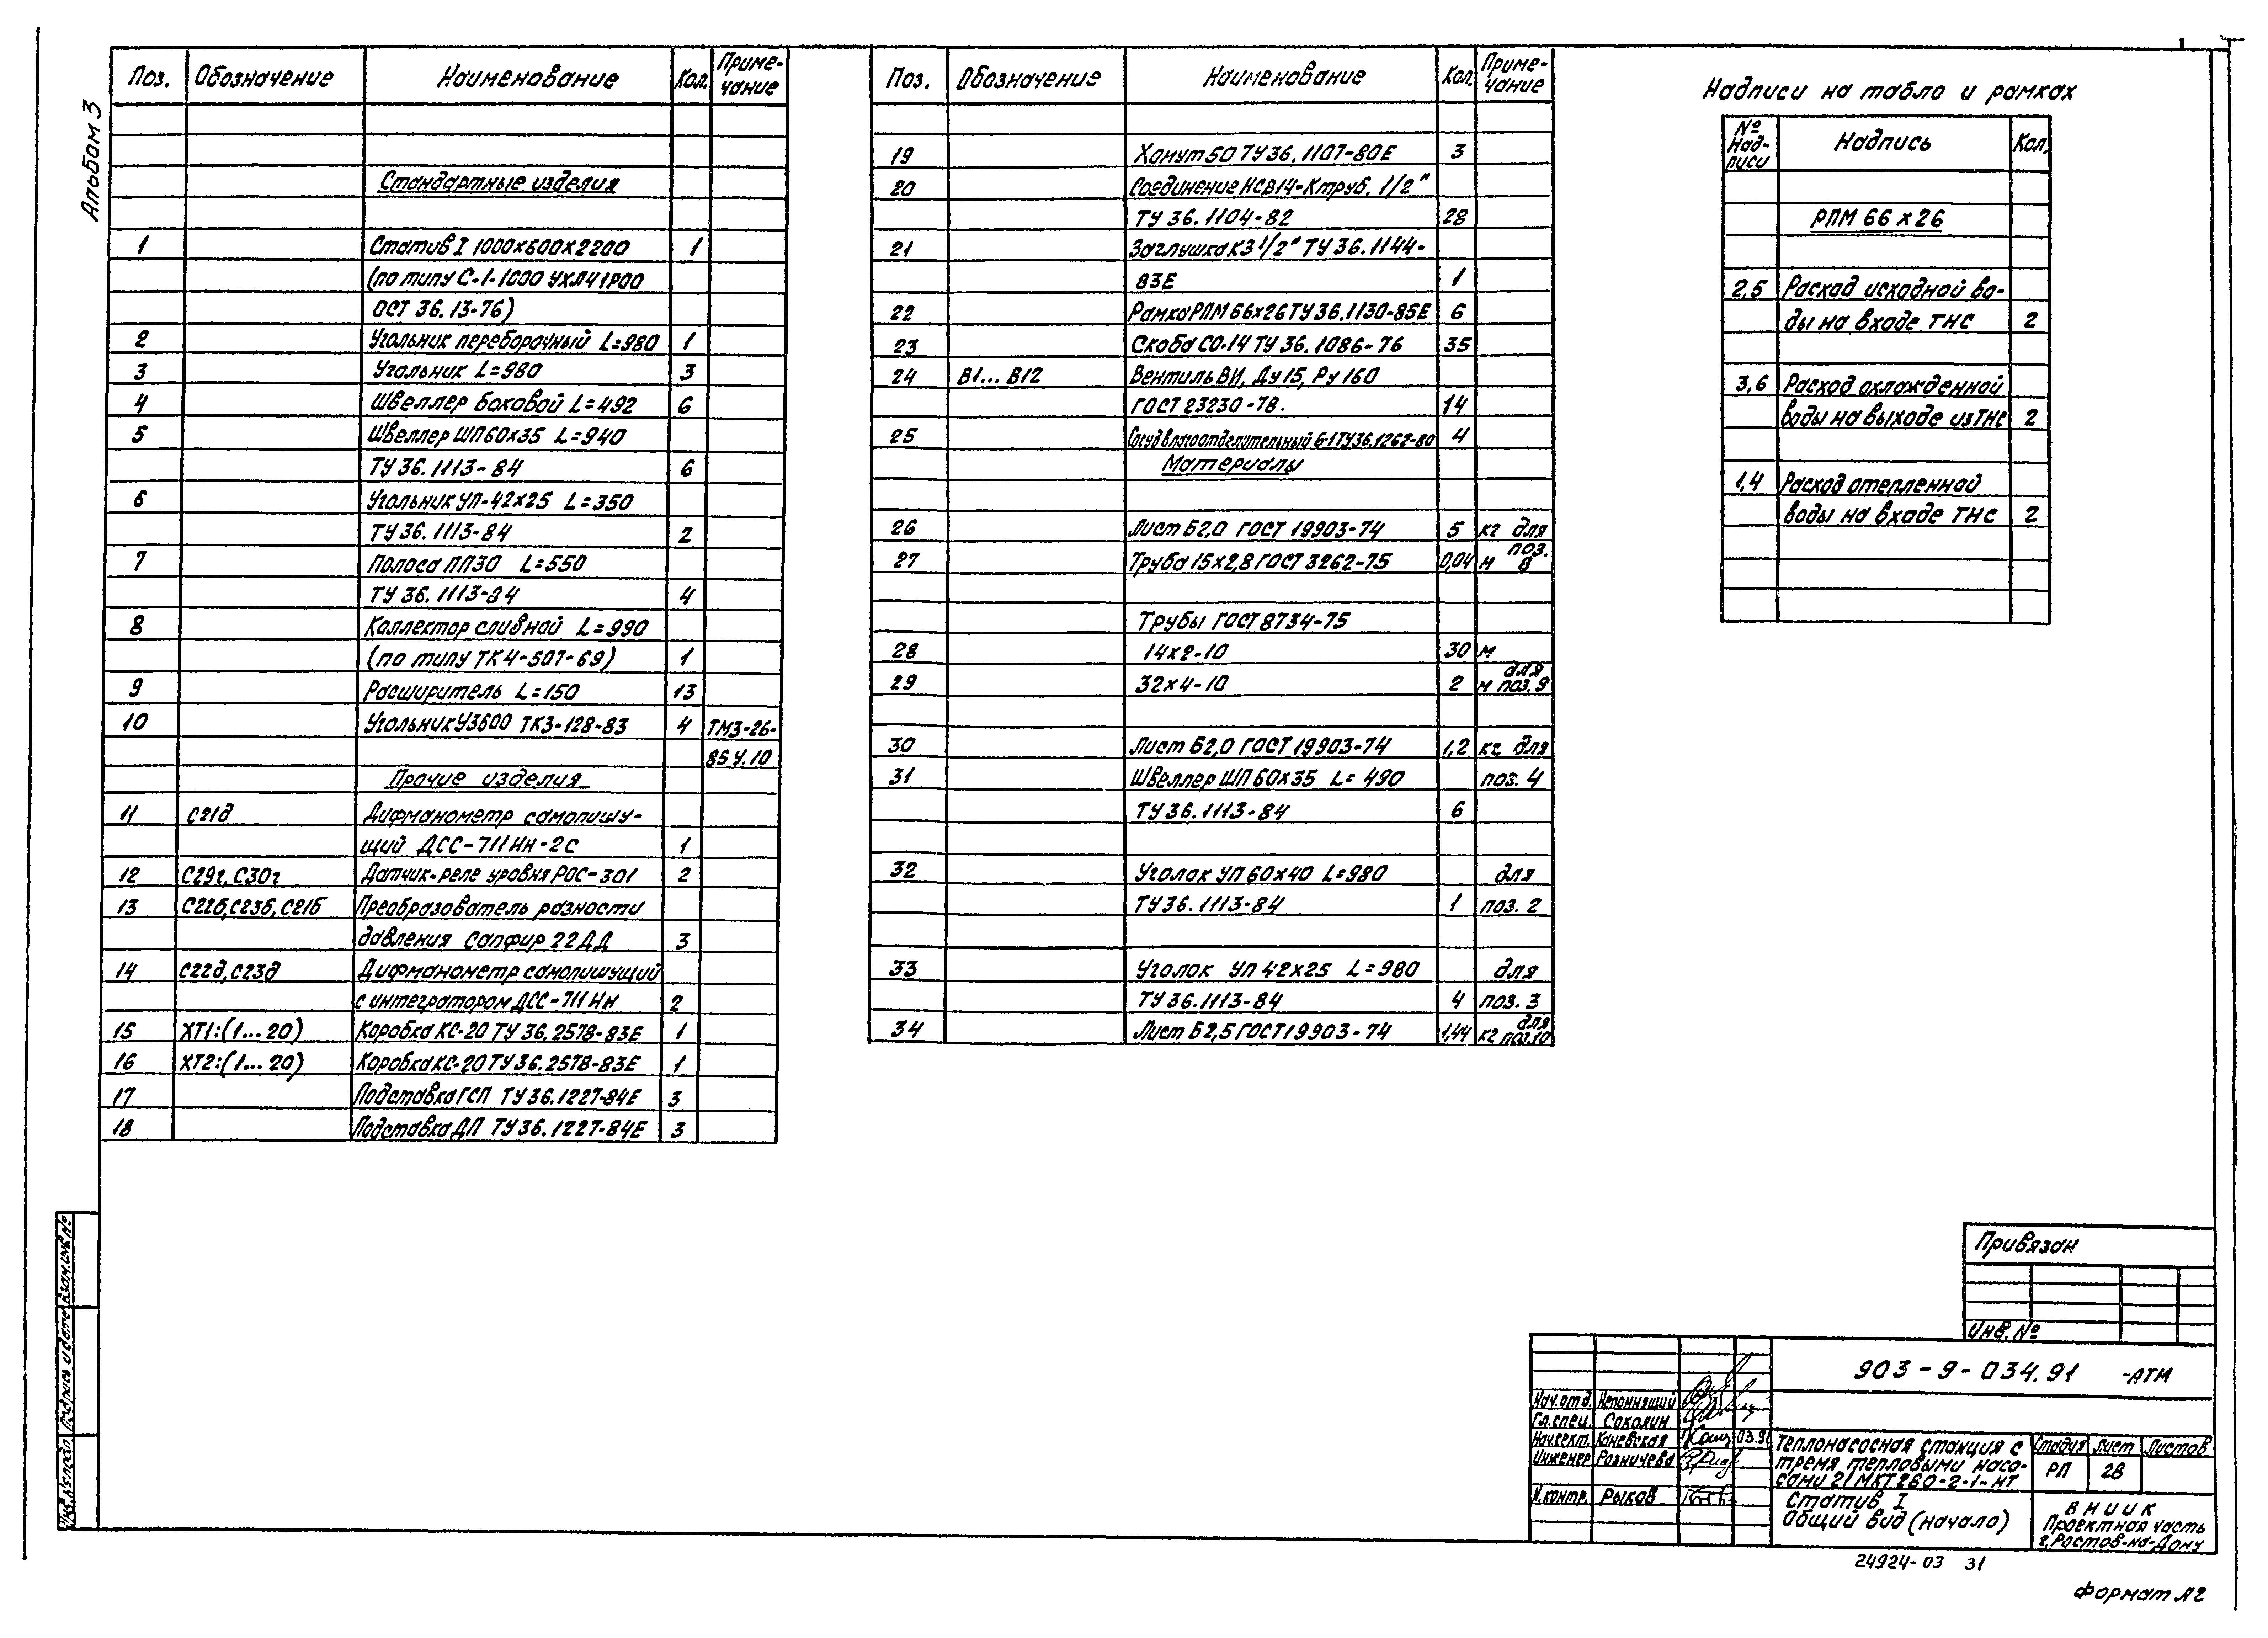 Альбом 3
Поз. Обозначение Наименование Кол. Приме-
чание
Стандартные изделия
1 Статив I 1000х600х2200 1
(по типу С-1-1000 УХЛ41Р00
ОСТ 36.13-76)
2 Угольник переборочный L=980 1
3 Угольник L=980 3
4 Швеллер боковой L=492 6
5 Швеллер ШП60х35 L=940
ТУ 36.1113-84 6
6 Угольник УП-42х25 L=350
ТУ 36.1113-84 2
7 Полоса ПП30 L=550
ТУ 36.1113-84 4
8 Коллектор сливной L=990
(по типу ТК4-507-69) 1
9 Расширитель L=150 13
10 Угольник У3600 ТК3-128-83 4 ТМ3-26-
85 У.10
Прочие изделия
11 С21д Дифманометр самопишу-
щий ДСС-711Нн-2С 1
12 С29г, С30г Датчик-реле уровня РОС-301 2
13 С22б, С23б, С21б Преобразователь разности
давления Сапфир 22ДД 3
14 С22д, С23д Дифманометр самопишущий
с интегратором ДСС-711Нн 2
15 ХТ1:(1...20) Коробка КС-20 ТУ 36.2578-83Е 1
16 ХТ2:(1...20) Коробка КС-20 ТУ 36.2578-83Е 1
17 Подставка ГСП ТУ 36.1227-84Е 3
18 Подставка ДП ТУ 36.1227-84Е 3
Поз. Обозначение Наименование Кол. Приме-
чание
19 Хомут 50 ТУ 36.1107-80Е 3
20 Соединение НСВ14-К труб. 1/2"
ТУ 36.1104-82 28
21 Заглушка К3 1/2" ТУ 36.1144-
83Е 1
22 Рамка РПМ 66х26 ТУ 36.1130-85Е 6
23 Скоба СО-14 ТУ 36.1086-76 35
24 В1...В12 Вентиль ВИ, Ду 15, Ру 160
ГОСТ 23230-78. 14
25 Сосуд влагоотделительный 6-1 ТУ36.1262-80 4
Материалы
26 Лист Б2,0 ГОСТ 19903-74 5 кг для
поз.
27 Труба 15х2,8 ГОСТ 3262-75 0,04 м 8
Трубы ГОСТ 8734-75
28 14х2-10 30 м
для
29 32х4-10 2 м поз. 9
30 Лист Б2,0 ГОСТ 19903-74 1,2 кг для
31 Швеллер ШП 60х35 L=490 поз. 4
ТУ 36.1113-84 6
32 Уголок УП 60х40 L=980 для
ТУ 36.1113-84 1 поз. 2
33 Уголок УП 42х25 L=980 для
ТУ 36.1113-84 4 поз. 3
для
34 Лист Б2,5 ГОСТ 19903-74 1,44 кг поз.10
Надписи на табло и рамках
№
Над-
писи Надпись Кол.
РПМ 66х26
2,5 Расход исходной во-
ды на входе ТНС 2
3,6 Расход охлажденной
воды на выходе из ТНС 2
1,4 Расход отепленной
воды на входе ТНС 2
Привязан
Инв. №
903-9-034.91 -АТМ
Нач.отд. Непомнящий
Гл.спец. Соколин
Нач.сект. Каневская 03.91
Инженер Розничева
Н.контр. Рыков
Теплонасосная станция с
тремя тепловыми насо-
сами 21МКТ280-2-1-НТ
Стадия Лист Листов
РП 28
Статив I
Общий вид (начало)
ВНИИК
Проектная часть
г.Ростов-на-Дону
24924-03 31
Формат А2
Взам.инв.№
Подпись и дата
Инв.№ подл.